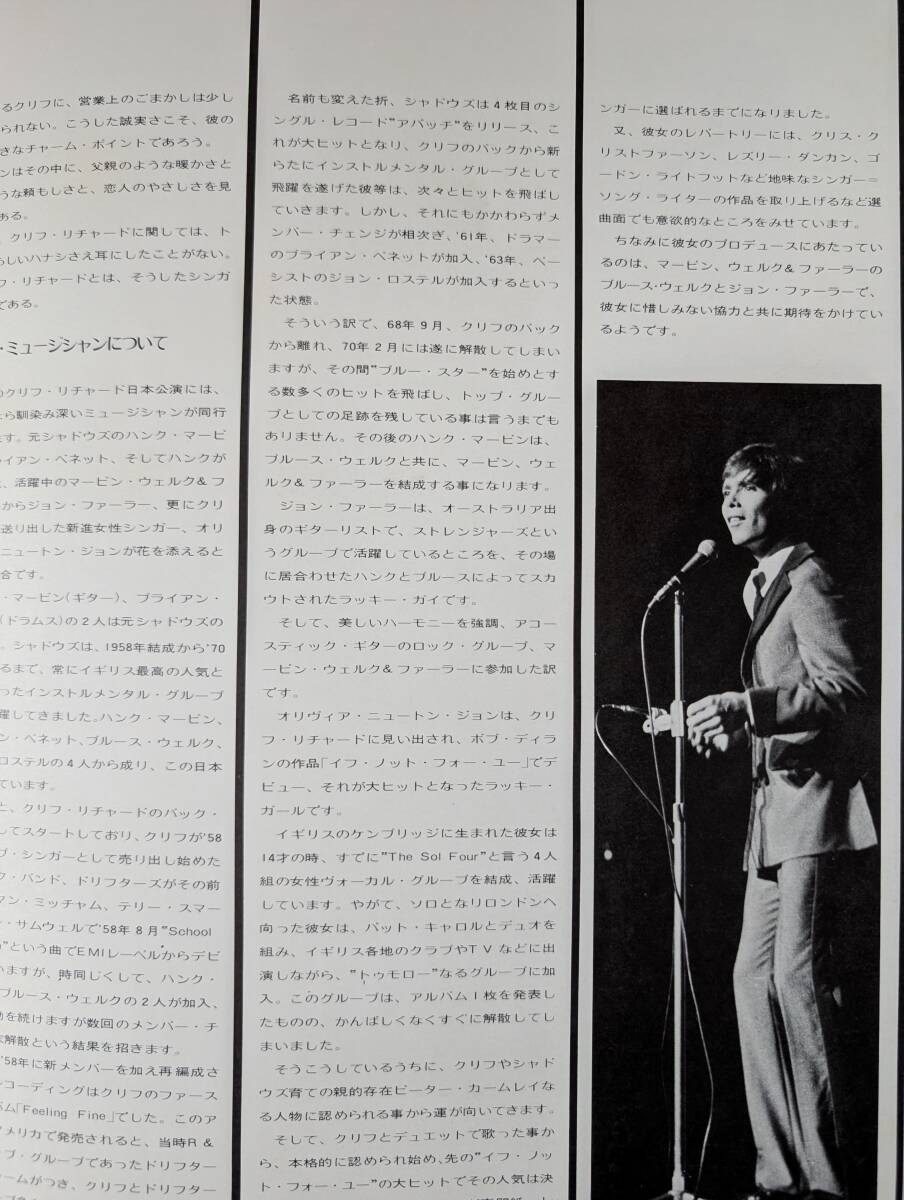 るクリフに、営業上のごまかしは少し
られない。こうした誠実さこそ、彼の
きなチャーム・ポイントであろう。
ンはその中に、父親のような暖かさと
うな頼もしさと、恋人のやさしさを見
ある。
、クリフ・リチャードに関しては、ト
らしいハナシさえ耳にしたことがない。
フ・リチャードとは、そうしたシンガ
である。
・ミュージシャンについて
のクリフ・リチャード日本公演には、
たら馴染み深いミュージシャンが同行
ます。元シャドウズのハンク・マービ
ライアン・ベネット、そしてハンクが
、活躍中のマービン・ウェルク&フ
からジョン・ファーラー、更にクリ
送り出した新進女性シンガー、オリ
ニュートン・ジョンが花を添えると
合です。
・マービン(ギター)、ブライアン・
(ドラムス)の2人は元シャドウズの
。シャドウズは、1958年結成から'70
るまで、常にイギリス最高の人気と
ったインストルメンタル・グループ
躍してきました。ハンク・マービン、
ン・ベネット、ブルース・ウェルク、
ロステルの4人から成り、この日本
ています。
と、クリフ・リチャードのバック・
してスタートしており、クリフが'58
プ・シンガーとして売り出し始めた
ク・バンド、ドリフターズがその前
マン・ミッチャム、テリー・スマー
・サムウェルで'58年8月"School
"という曲でEMIレーベルからデビ
いますが、時同じくして、ハンク・
ブルース・ウェルクの2人が加入、
動を続けますが数回のメンバー・チ
解散という結果を招きます。
'58年に新メンバーを加え再編成さ
レコーディングはクリフのファース
バム「Feeling Fine」でした。このア
メリカで発売されると、当時R&
ブ・グループであったドリフター
ームがつき、クリフとドリフター
名前も変えた折、シャドウズは4枚目のシ
ングル・レコード"アパッチ"をリリース、こ
れが大ヒットとなり、クリフのバックから新
らたにインストルメンタル・グループとして
飛躍を遂げた彼等は、次々とヒットを飛ばし
ていきます。しかし、それにもかかわらずメ
ンバー・チェンジが相次ぎ、'61年、ドラマー
のブライアン・ベネットが加入、'63年、ベー
シストのジョン・ロステルが加入するといっ
た状態。
そういう訳で、68年9月、クリフのバック
から離れ、70年2月には遂に解散してしまい
ますが、その間"ブルー・スター"を始めとす
る数多くのヒットを飛ばし、トップ・グルー
プとしての足跡を残している事は言うまでも
ありません。その後のハンク・マービンは、
ブルース・ウェルクと共に、マービン、ウェ
ルク&ファーラーを結成する事になります。
ジョン・ファーラーは、オーストラリア出
身のギターリストで、ストレンジャーズとい
うグループで活躍しているところを、その場
に居合わせたハンクとブルースによってスカ
ウトされたラッキー・ガイです。
そして、美しいハーモニーを強調、アコー
スティック・ギターのロック・グループ、マ
ービン・ウェルク&ファーラーに参加した訳
です。
オリヴィア・ニュートン・ジョンは、クリ
フ・リチャードに見い出され、ボブ・ディラ
ンの作品「イフ・ノット・フォー・ユー」でデ
ビュー、それが大ヒットとなったラッキー・
ガールです。
イギリスのケンブリッジに生まれた彼女は
14才の時、すでに"The Sol Four"と言う4人
組の女性ヴォーカル・グループを結成、活躍
しています。やがて、ソロとなりロンドンへ
向った彼女は、パット・キャロルとデュオを
組み、イギリス各地のクラブやTVなどに出
演しながら、"トゥモロー"なるグループに加
入。このグループは、アルバム1枚を発表し
たものの、かんばしくなくすぐに解散してし
まいました。
そうこうしているうちに、クリフやシャド
ウズ育ての親的存在ピーター・カームレイな
る人物に認められる事から運が向いてきます。
そして、クリフとデュエットで歌った事か
ら、本格的に認められ始め、先の"イフ・ノッ
ト・フォー・ユー"の大ヒットでその人気は決
ンガーに選ばれるまでになりました。
又、彼女のレパートリーには、クリス・ク
リストファーソン、レズリー・ダンカン、ゴ
ードン・ライトフットなど地味なシンガー=
ソング・ライターの作品を取り上げるなど選
曲面でも意欲的なところをみせています。
ちなみに彼女のプロデュースにあたってい
るのは、マービン、ウェルク&ファーラーの
ブルース・ウェルクとジョン・ファーラーで、
彼女に惜しみない協力と共に期待をかけてい
るようです。